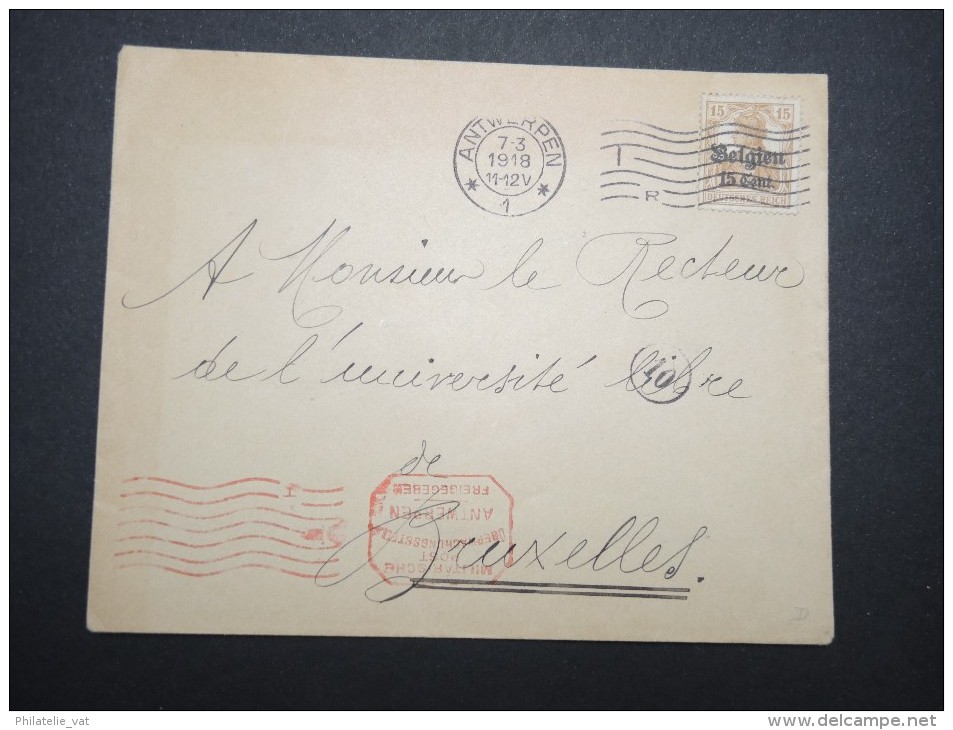 ANTWERPEN
7-3
1918
11-12V
* 1 *
T
R
15 15
Belgien
15 Cent.
DEUTSCHES REICH
A Monsieur le Recteur
de l'université libre
10
de
Bruxelles.
MILITÄRISCHE
POST
ÜBERWACHUNGSSTELLE
ANTWERPEN
FREIGEGEBEN
Philatelie_vat
www.delcampe.net